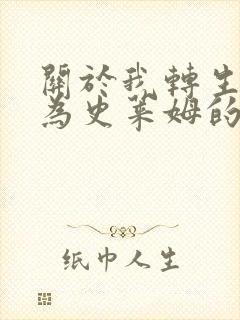 關於我轉生
為史萊姆的
纸巾人生